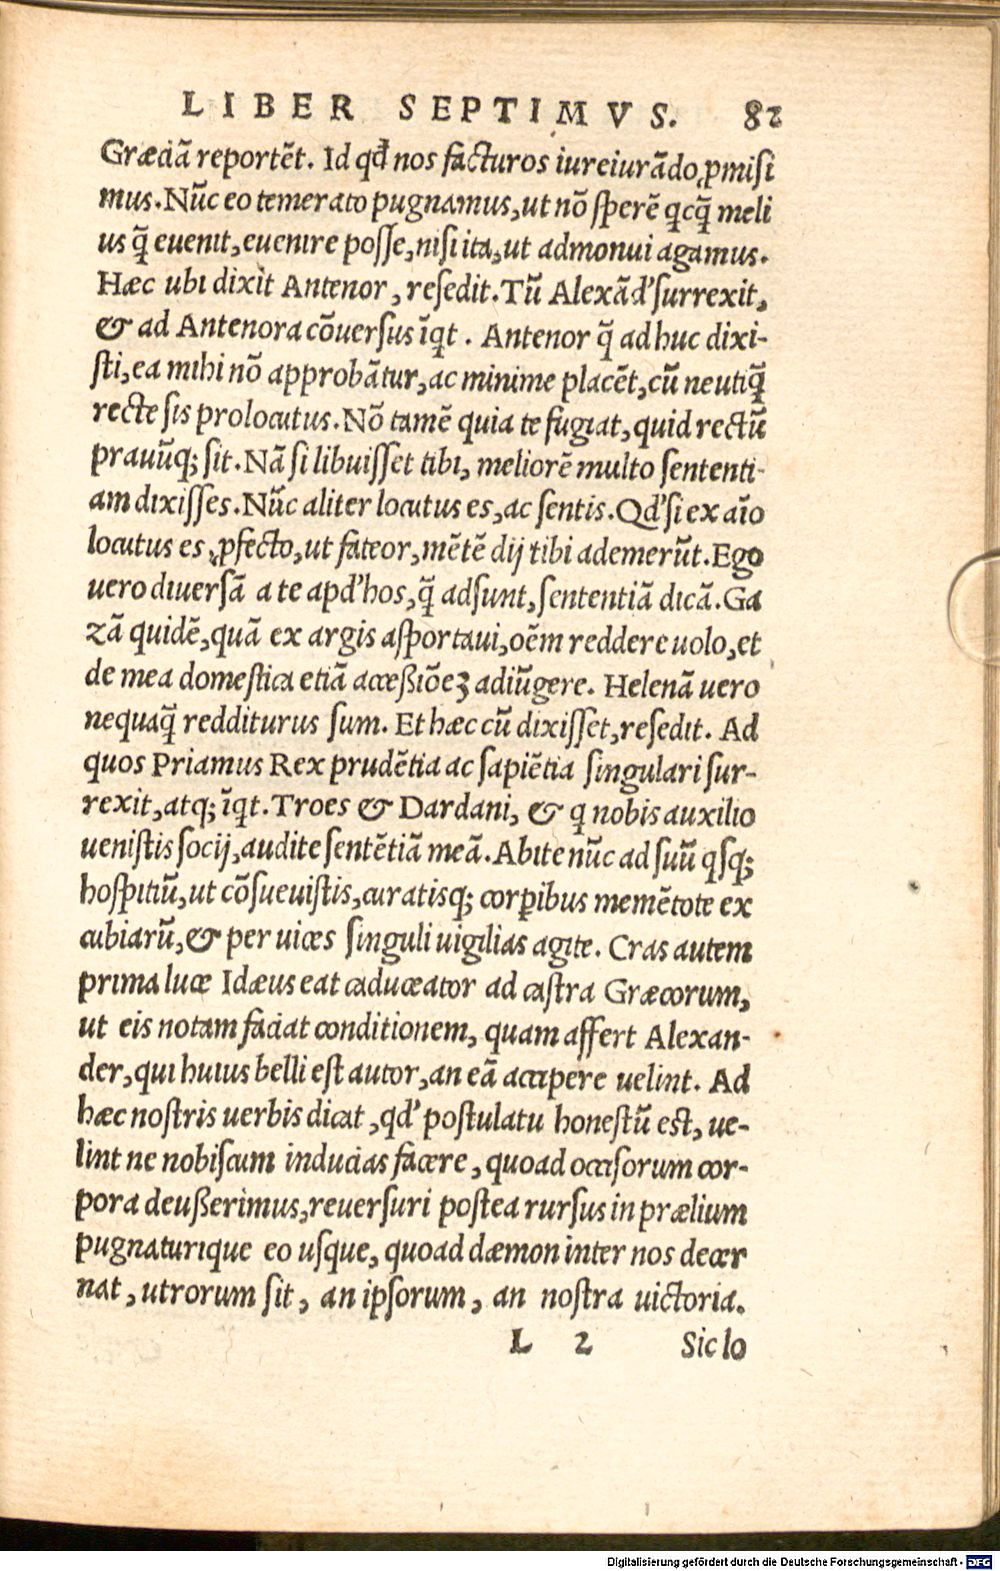 LIBER SEPTIMVS. 82
Græciã reportẽt. Id qđ nos facturos iureiurãdo ꝓmisi
mus. Nũc eo temerato pugnamus, ut nõ sperẽ qcq̃ meli
us q̃ evenit, evenire posse, nisi ita, ut admonui agamus.
Hæc ubi dixit Antenor, resedit. Tũ Alexãd' surrexit,
& ad Antenora cõversus ĩqt. Antenor q̃ ad huc dixi-
sti, ea mihi nõ approbãtur, ac minime placẽt, cũ neutiq̃
recte sis prolocutus. Nõ tamẽ quia te fugiat, quid rectũ
pravũq; sit. Nã si libuisset tibi, meliorẽ multo sententi-
am dixisses. Nũc aliter locutus es, ac sentis. Qd' si ex aĩo
locutus es ꝓfecto, ut fateor, mẽtẽ dij tibi ademerũt. Ego
vero diversã a te apd' hos, q̃ adsunt, sententiã dicã. Ga
zã quidẽ, quã ex argis asportaui, oẽm reddere uolo, et
de mea domestica etiã acceßiõeʒ adiũgere. Helenã uero
nequaq̃ redditurus sum. Et hæc cũ dixisset, resedit. Ad
quos Priamus Rex prudẽtia ac sapiẽtia singulari sur-
rexit, atq; ĩqt. Troes & Dardani, & q nobis auxilio
uenistis socij, audite sentẽtiã meã. Abite nũc ad suũ qsq;
hospitiũ, ut cõsuevistis, curatisq; corꝑibus memẽtote ex
cubiarũ, & per uices singuli uigilias agite. Cras autem
prima luce Idæus eat caduceator ad castra Græcorum,
ut eis notam faciat conditionem, quam affert Alexan-
der, qui huius belli est autor, an eã accipere velint. Ad
hæc nostris uerbis dicat, qd' postulatu honestũ est, ue-
lint ne nobiscum inducias facere, quoad occisorum cor-
pora deußerimus, reversuri postea rursus in prælium
pugnaturique eo usque, quoad dæmon inter nos decer
nat, utrorum sit, an ipsorum, an nostra uictoria.
L 2 Sic lo
Digitalisierung gefördert durch die Deutsche Forschungsgemeinschaft - DFG